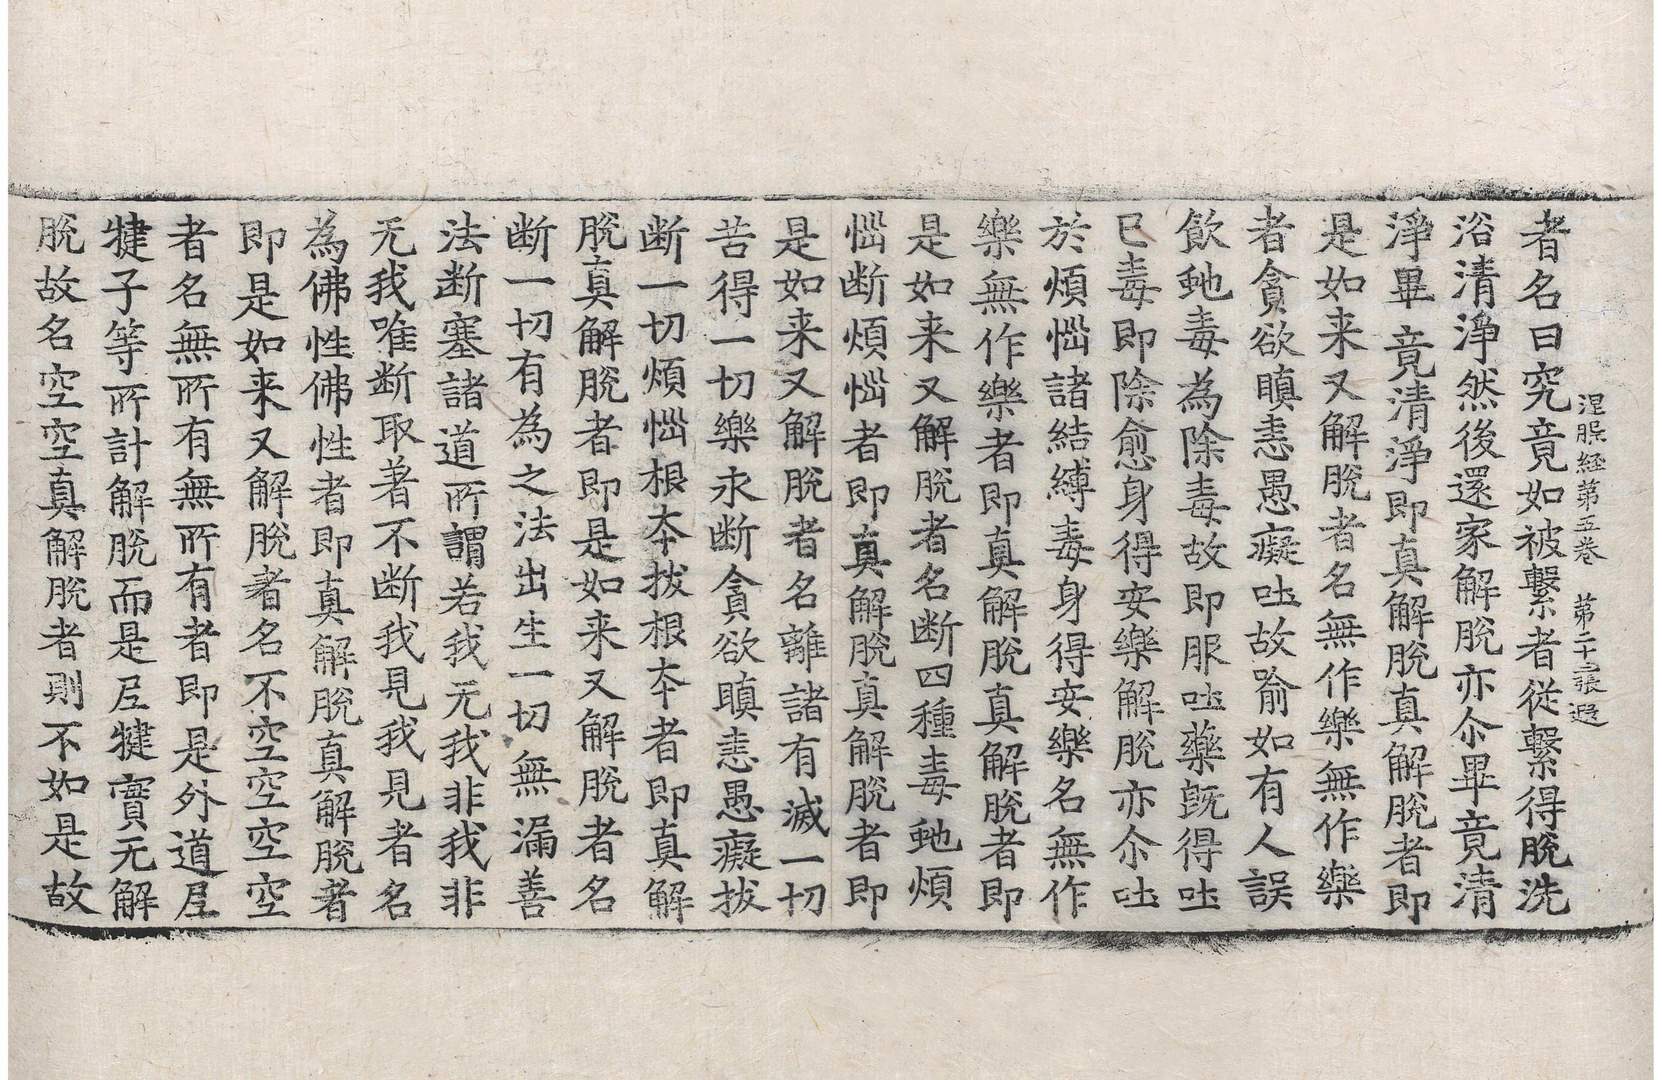 涅槃経第五巻　第二十三張　遐
者名曰究竟如被繫者従繫得脫洗
浴清淨然後還家解脫亦尒畢竟清
淨畢竟清淨即真解脫真解脫者即
是如来又解脫者名無作樂無作樂
者貪欲瞋恚愚癡吐故喻如有人誤
飲虵毒為除毒故即服吐藥既得吐
已毒即除愈身得安樂解脫亦尒吐
於煩惱諸結縛毒身得安樂名無作
樂無作樂者即真解脫真解脫者即
是如来又解脫者名断四種毒虵煩
惱断煩惱者即真解脫真解脫者即
是如来又解脫者名離諸有滅一切
苦得一切樂永断貪欲瞋恚愚癡拔
断一切煩惱根夲拔根夲者即真解
脫真解脫者即是如来又解脫者名
断一切有為之法出生一切無漏善
法断塞諸道所謂若我无我非我非
无我唯断取著不断我見我見者名
為佛性佛性者即真解脫真解脫者
即是如来又解脫者名不空空空空
者名無所有無所有者即是外道尼
犍子等所計解脫而是尼犍實无解
脫故名空空真解脫者則不如是故